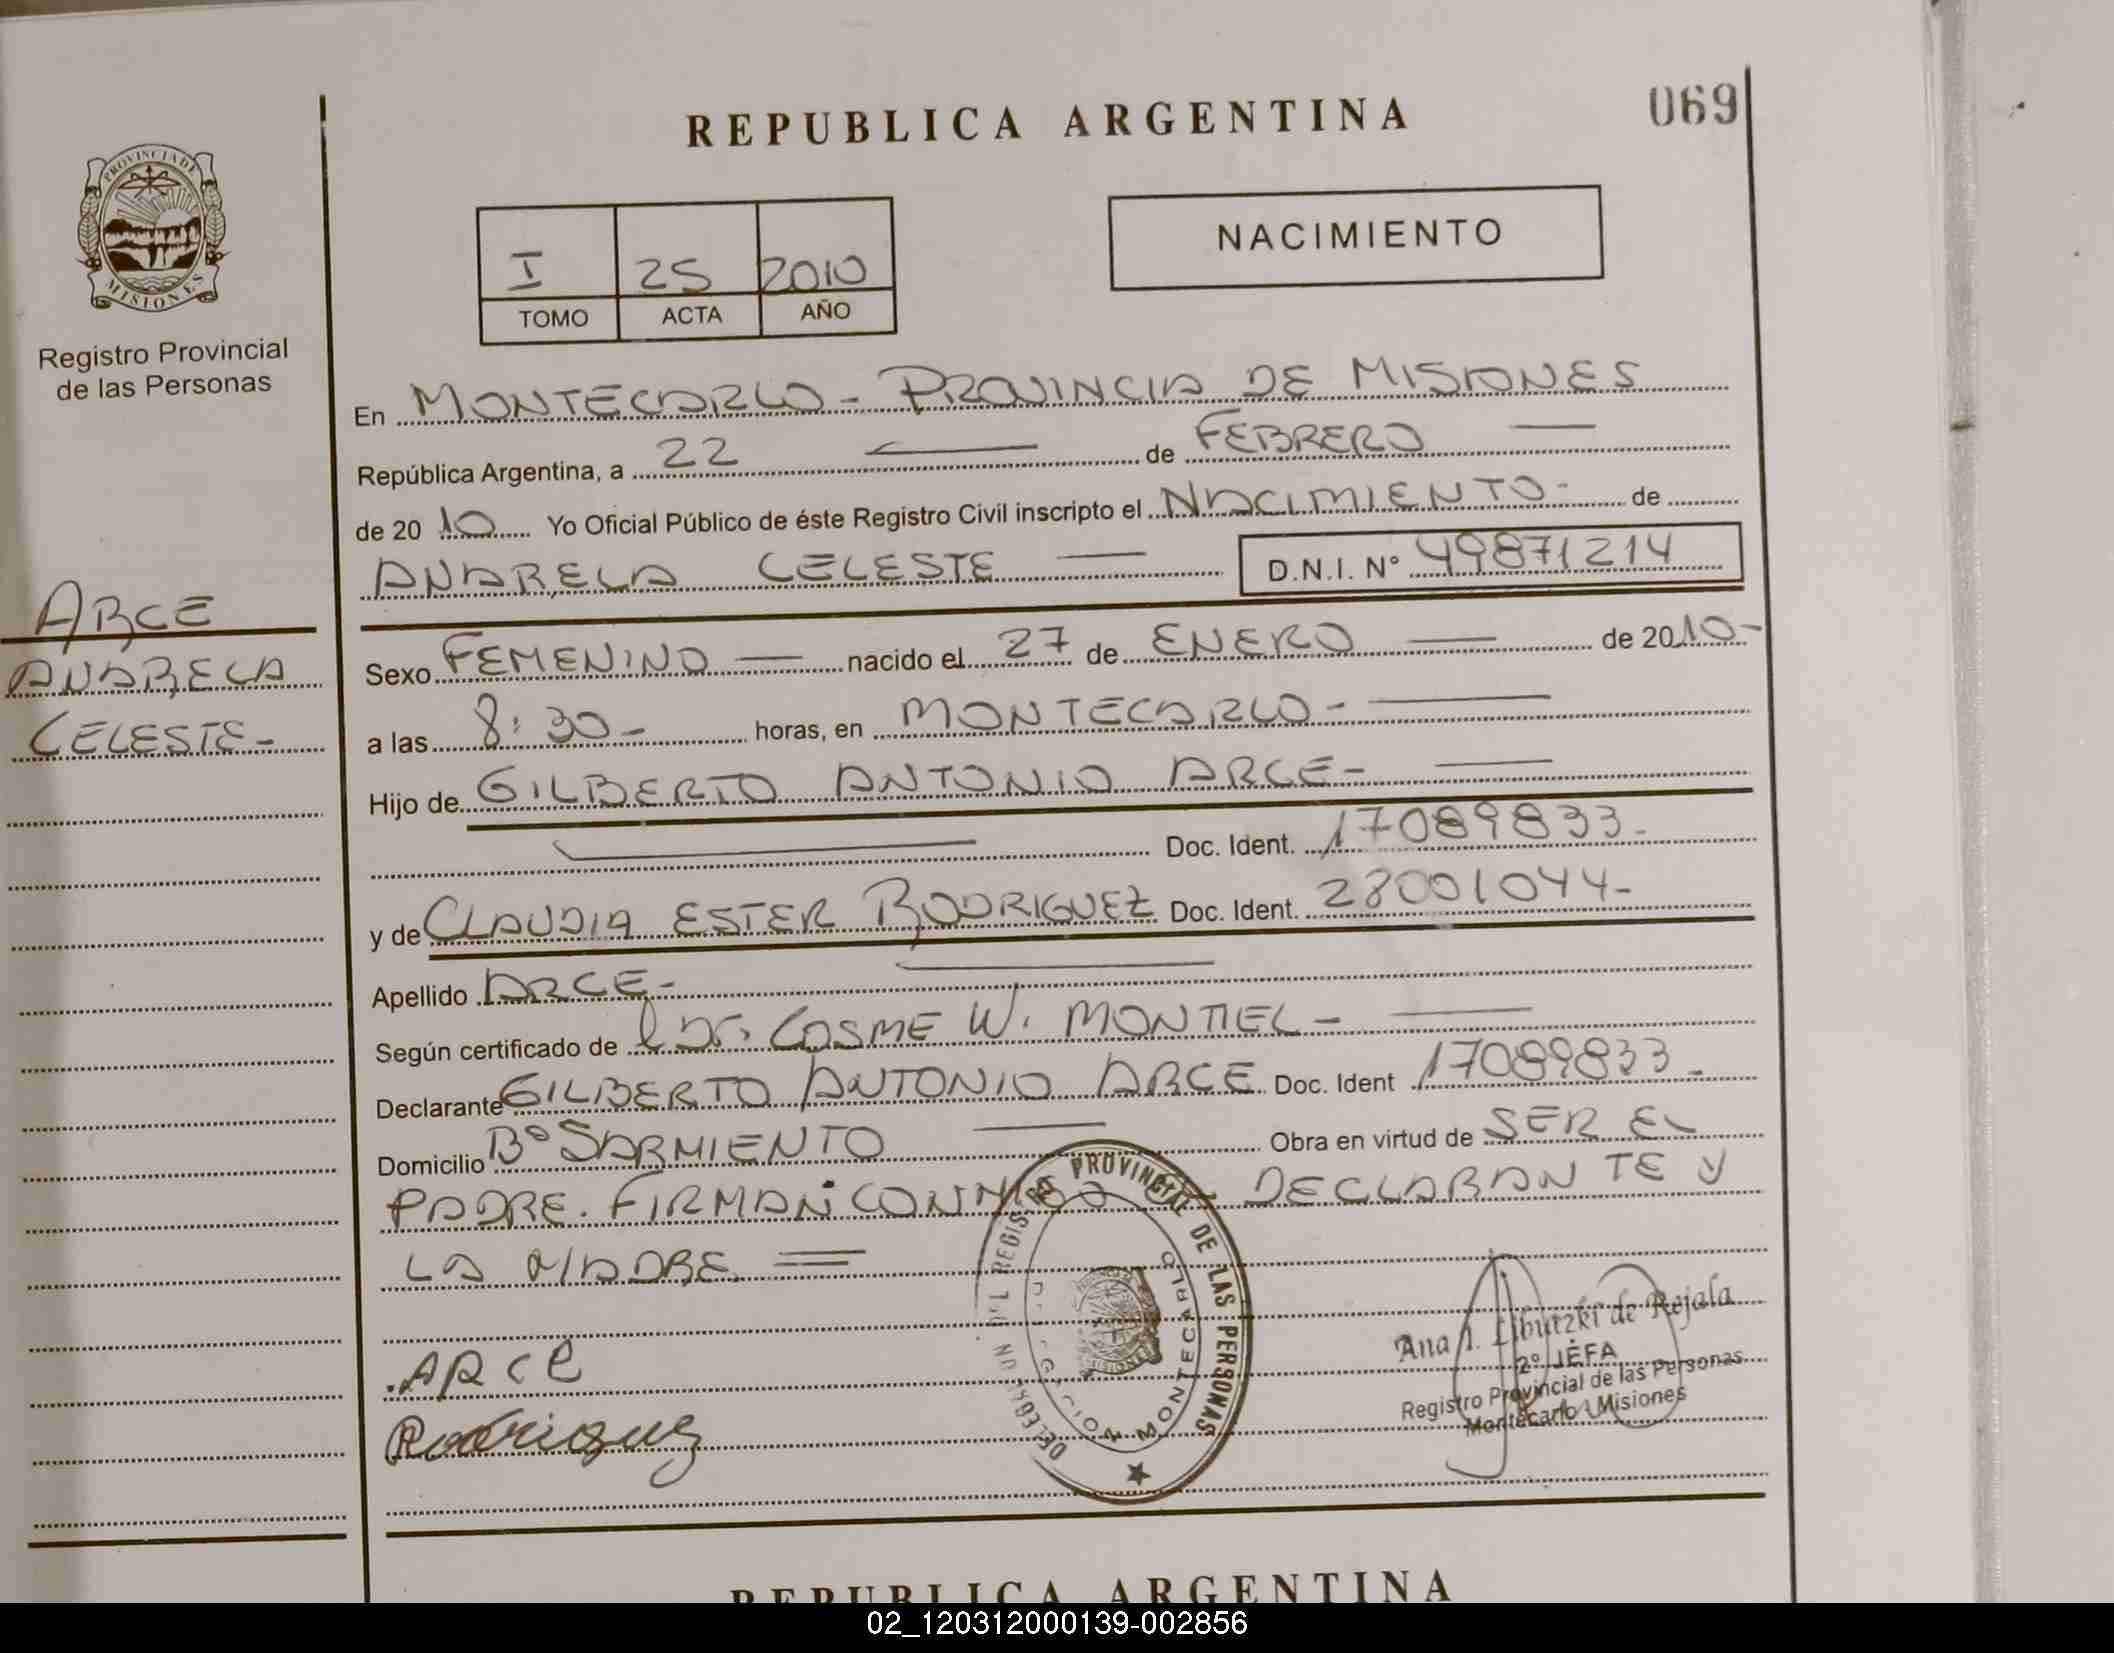 REPUBLICA ARGENTINA
069
PROVINCIA DE
MISIONES
Registro Provincial
de las Personas
I 25 2010
TOMO ACTA AÑO
NACIMIENTO
En MONTECARLO - PROVINCIA DE MISIONES
República Argentina, a 22 — de FEBRERO —
de 20 10 Yo Oficial Público de éste Registro Civil inscripto el NACIMIENTO - de
ANABELA CELESTE — D.N.I. N° 49871214
ARCE
ANABELA
CELESTE -
Sexo FEMENINO — nacido el 27 de ENERO — de 20 10 -
a las 8:30 - horas, en MONTECARLO - —
Hijo de GILBERTO ANTONIO ARCE - —
Doc. Ident. 17089833 -
y de CLAUDIA ESTER RODRIGUEZ Doc. Ident. 28001044 -
Apellido ARCE -
Según certificado de Dr. COSME W. MONTIEL - —
Declarante GILBERTO ANTONIO ARCE Doc. Ident 17089833 -
Domicilio B° SARMIENTO — Obra en virtud de SER EL
PADRE. FIRMAN CONMIGO DECLARANTE Y
LA MADRE =
ARCE
Rodriguez
REGISTRO PROVINCIAL DE LAS PERSONAS
MONTECARLO
MISIONES
Ana I. Libutzki de Rejala
2° JEFA
Registro Provincial de las Personas
Montecarlo - Misiones
REPUBLICA ARGENTINA
02_120312000139-002856